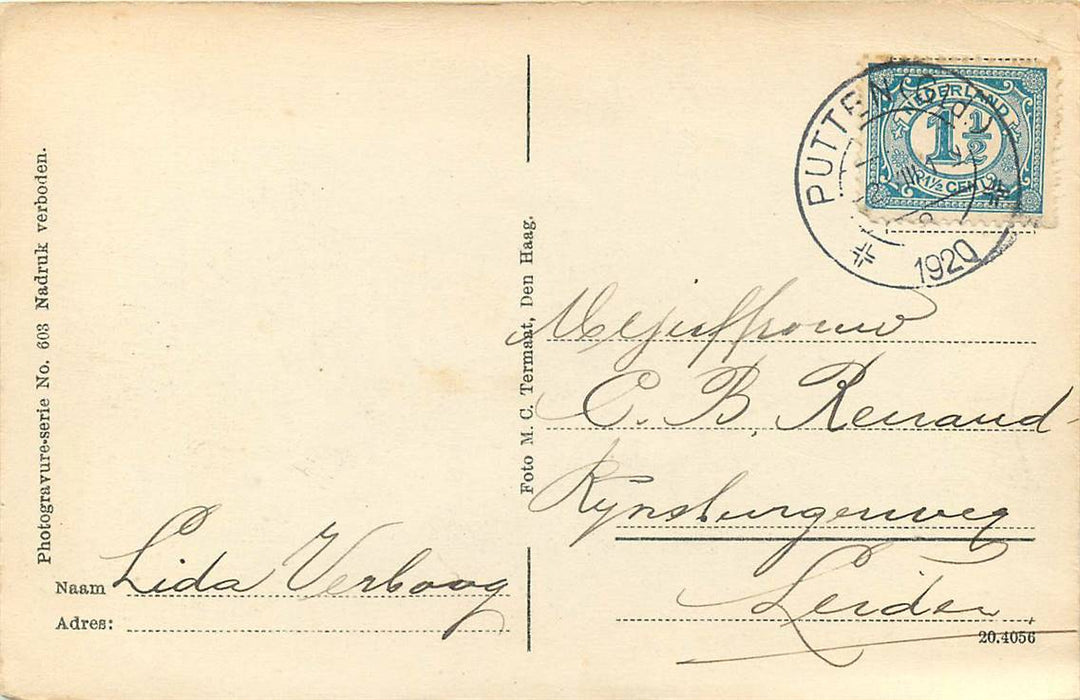 Photogravure-serie No. 603 Nadruk verboden.
Naam Lida Verboog
Adres:
Foto M. C. Termaat, Den Haag.
NEDERLAND
1½
1½ CENT
PUTTEN (Gld)
1920
Mejuffrouw
C. B. Renaud
Rynsburgerweg
Leiden
20.4056